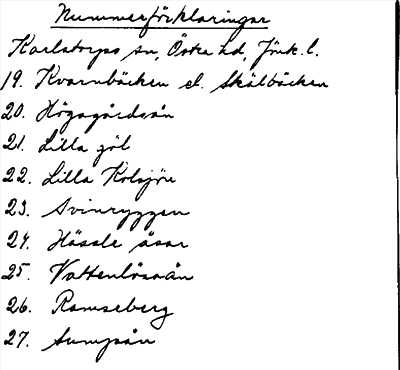 Nummerförklaringar
Karlstorps sn, Östra hd, Jönk. l.
19. Kvarnbäcken el. Skälbäcken
20. Högagärdsån
21. Lilla göl
22. Lilla Kolsjön
23. Svinryggen
24. Hässle åsar
25. Vattenlösaån
26. Ramseberg
27. Sumpån